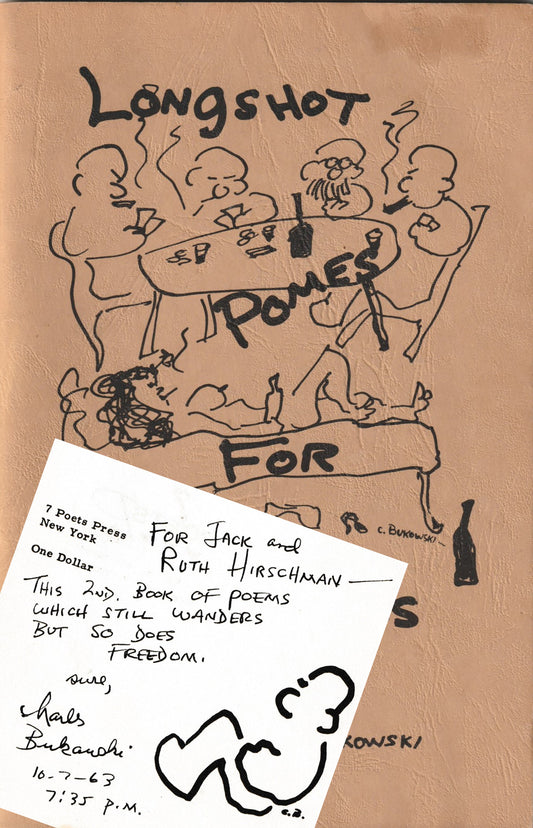 LONGSHOT
POMES
FOR
C. BUKOWSKI —
S
KOWSKI
7 Poets Press
New York
One Dollar
FOR JACK and
RUTH HIRSCHMAN —
THIS 2ND. BOOK OF POEMS
WHICH STILL WANDERS
BUT SO DOES
FREEDOM.
sure,
Charles
Bukowski
10-7-63
7:35 P.M.
C.B.